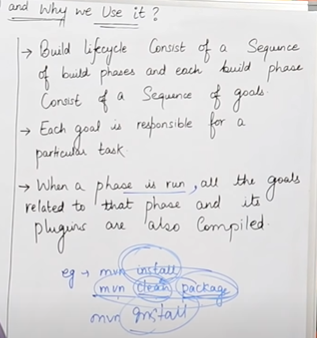 and Why we Use it?
→ Build lifecycle Consist of a Sequence
of build phases and each build phase
Consist of a Sequence of goals.
→ Each goal is responsible for a
particular task.
→ When a phase is run, all the goals
related to that phase and its
plugins are also Compiled.
eg → mvn install
mvn clean package
mvn install